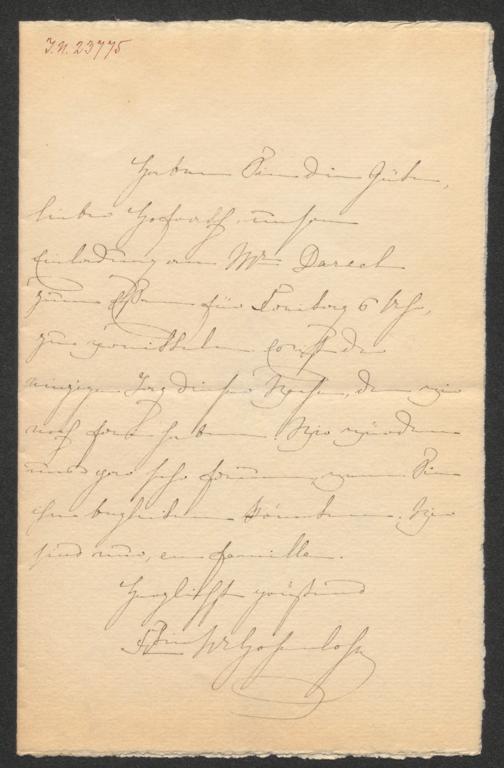 I.N. 23775
Haben Sie die Güte,
lieber Hofrath, unsere
Einladung an Mr Darech
zum Essen für Sonntag 6 Uhr,
zu vermitteln. Es ist der
einzige Tag dieser Woche, den wir
noch frei haben. Wir würden
uns sehr freuen, wenn Sie
ihn begleiten könnten. Wir
sind nur, en famille.
Herzlichst grüßend
Hohenlohe